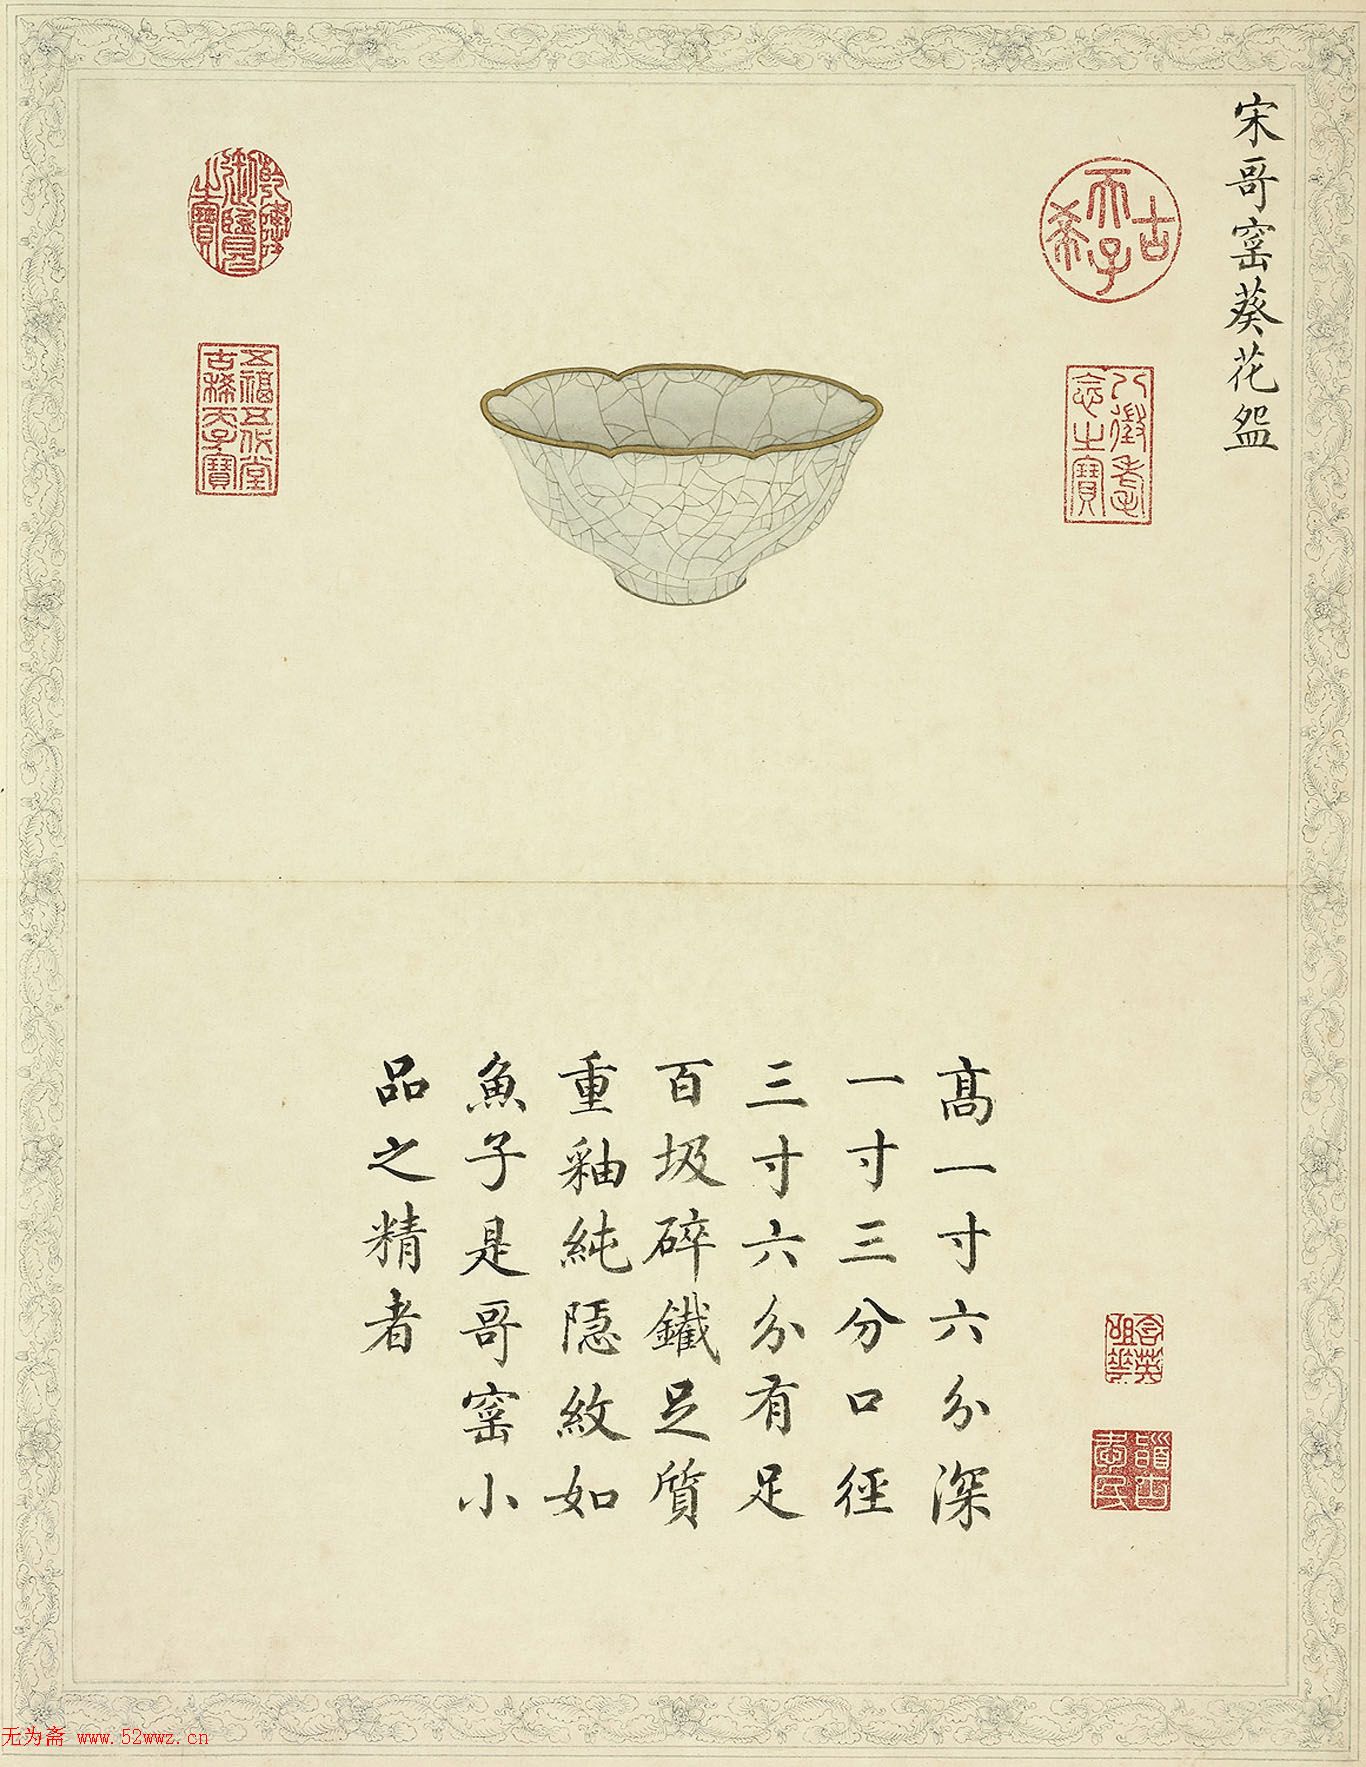 宋哥窰葵花盌
古希天子
八徵耄念之寳
乾隆御覽之寳
五福五代堂古稀天子寳
髙一寸六分深
一寸三分口徑
三寸六分有足
百圾碎鐵足質
重釉純隱紋如
魚子是哥窰小
品之精者
含英咀華
无为斋 www.52wwz.cn